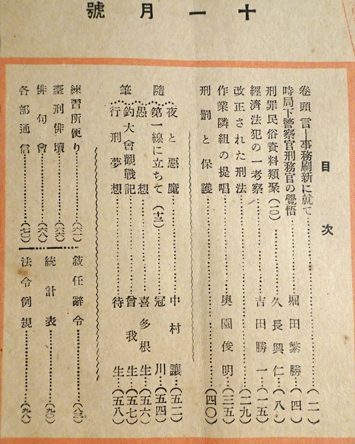 十一月號
目次
卷頭言―事務刷新に就て……(二)
時局下警察官刑務官の覺悟……堀田繁勝(四)
刑罪民俗資料類聚(二〇)……久長興仁(八)
經濟法犯の一考察……吉田勝一(一五)
改正された刑法……(二九)
作業隣組の提唱……奥園俊明(三五)
刑罰と保護……(四〇)
隨筆
夜と惡魔……中村讓(五二)
第一線に立ちて(十三)……冠川(五四)
愚想……喜多根生(五六)
釣大會觀戰記……曾我生(五七)
行刑夢想……待生(五八)
練習所便り……(六一)
臺刑俳壇……(六六)
俳句會……(六八)
各部通信……(七〇)
敍任辭令……(八三)
統計表……(九〇)
法令例規……(九八)